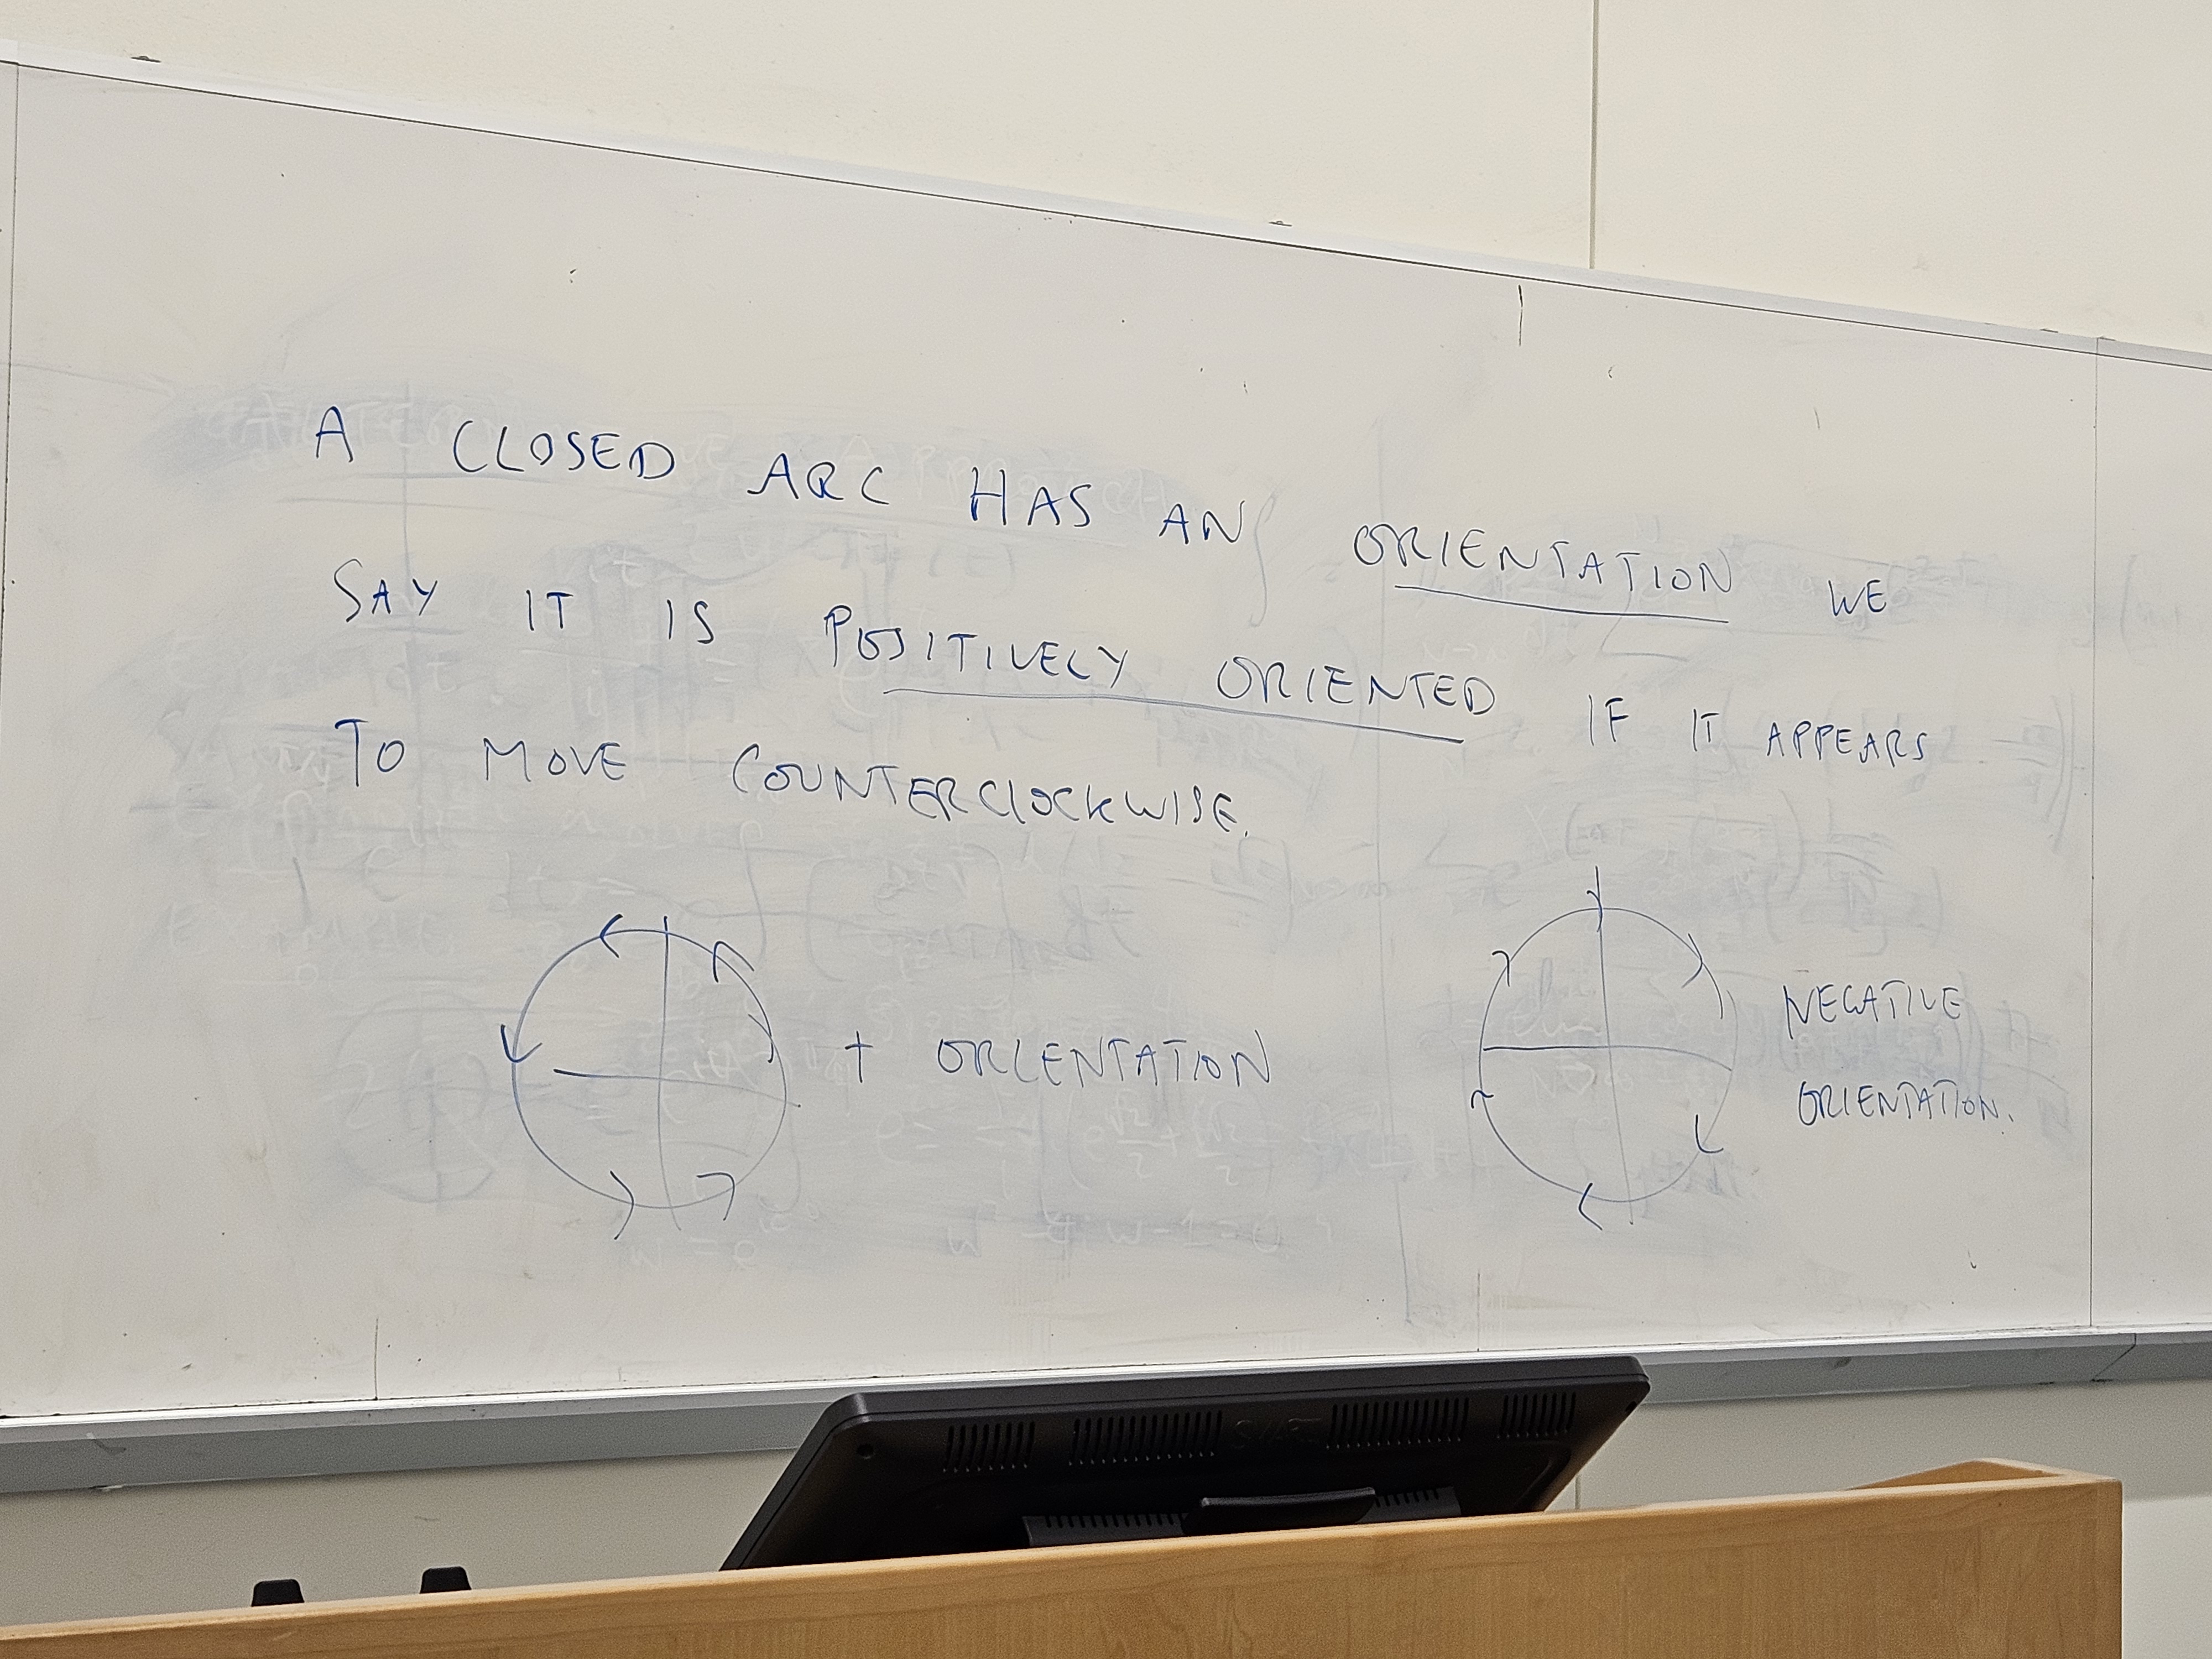 A CLOSED ARC HAS AN ORIENTATION WE
SAY IT IS POSITIVELY ORIENTED IF IT APPEARS
TO MOVE COUNTERCLOCKWISE.
+ ORIENTATION
NEGATIVE
ORIENTATION.